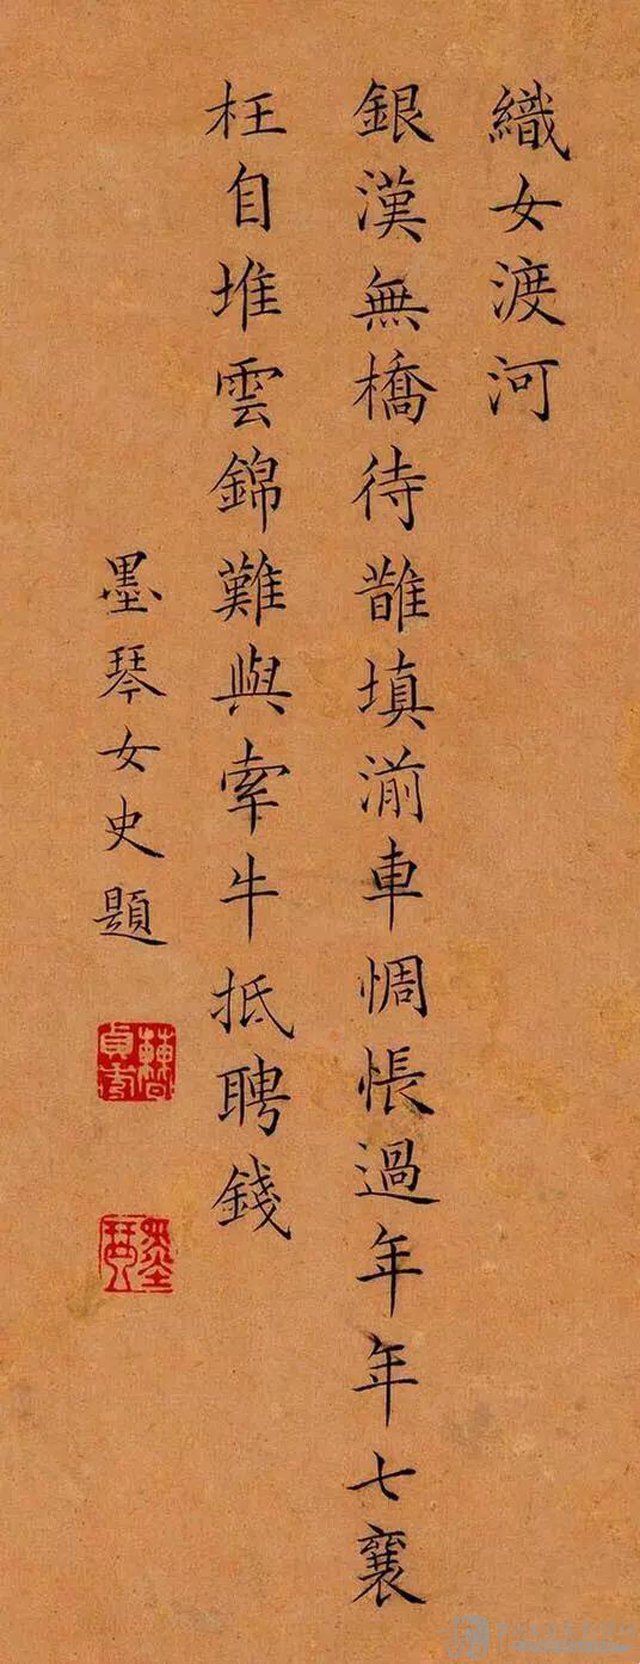 織女渡河
銀漢無橋待䧿填湔車惆悵過年年七襄
枉自堆雲錦難與牽牛抵聘錢
墨琴女史題
曹貞秀
墨琴